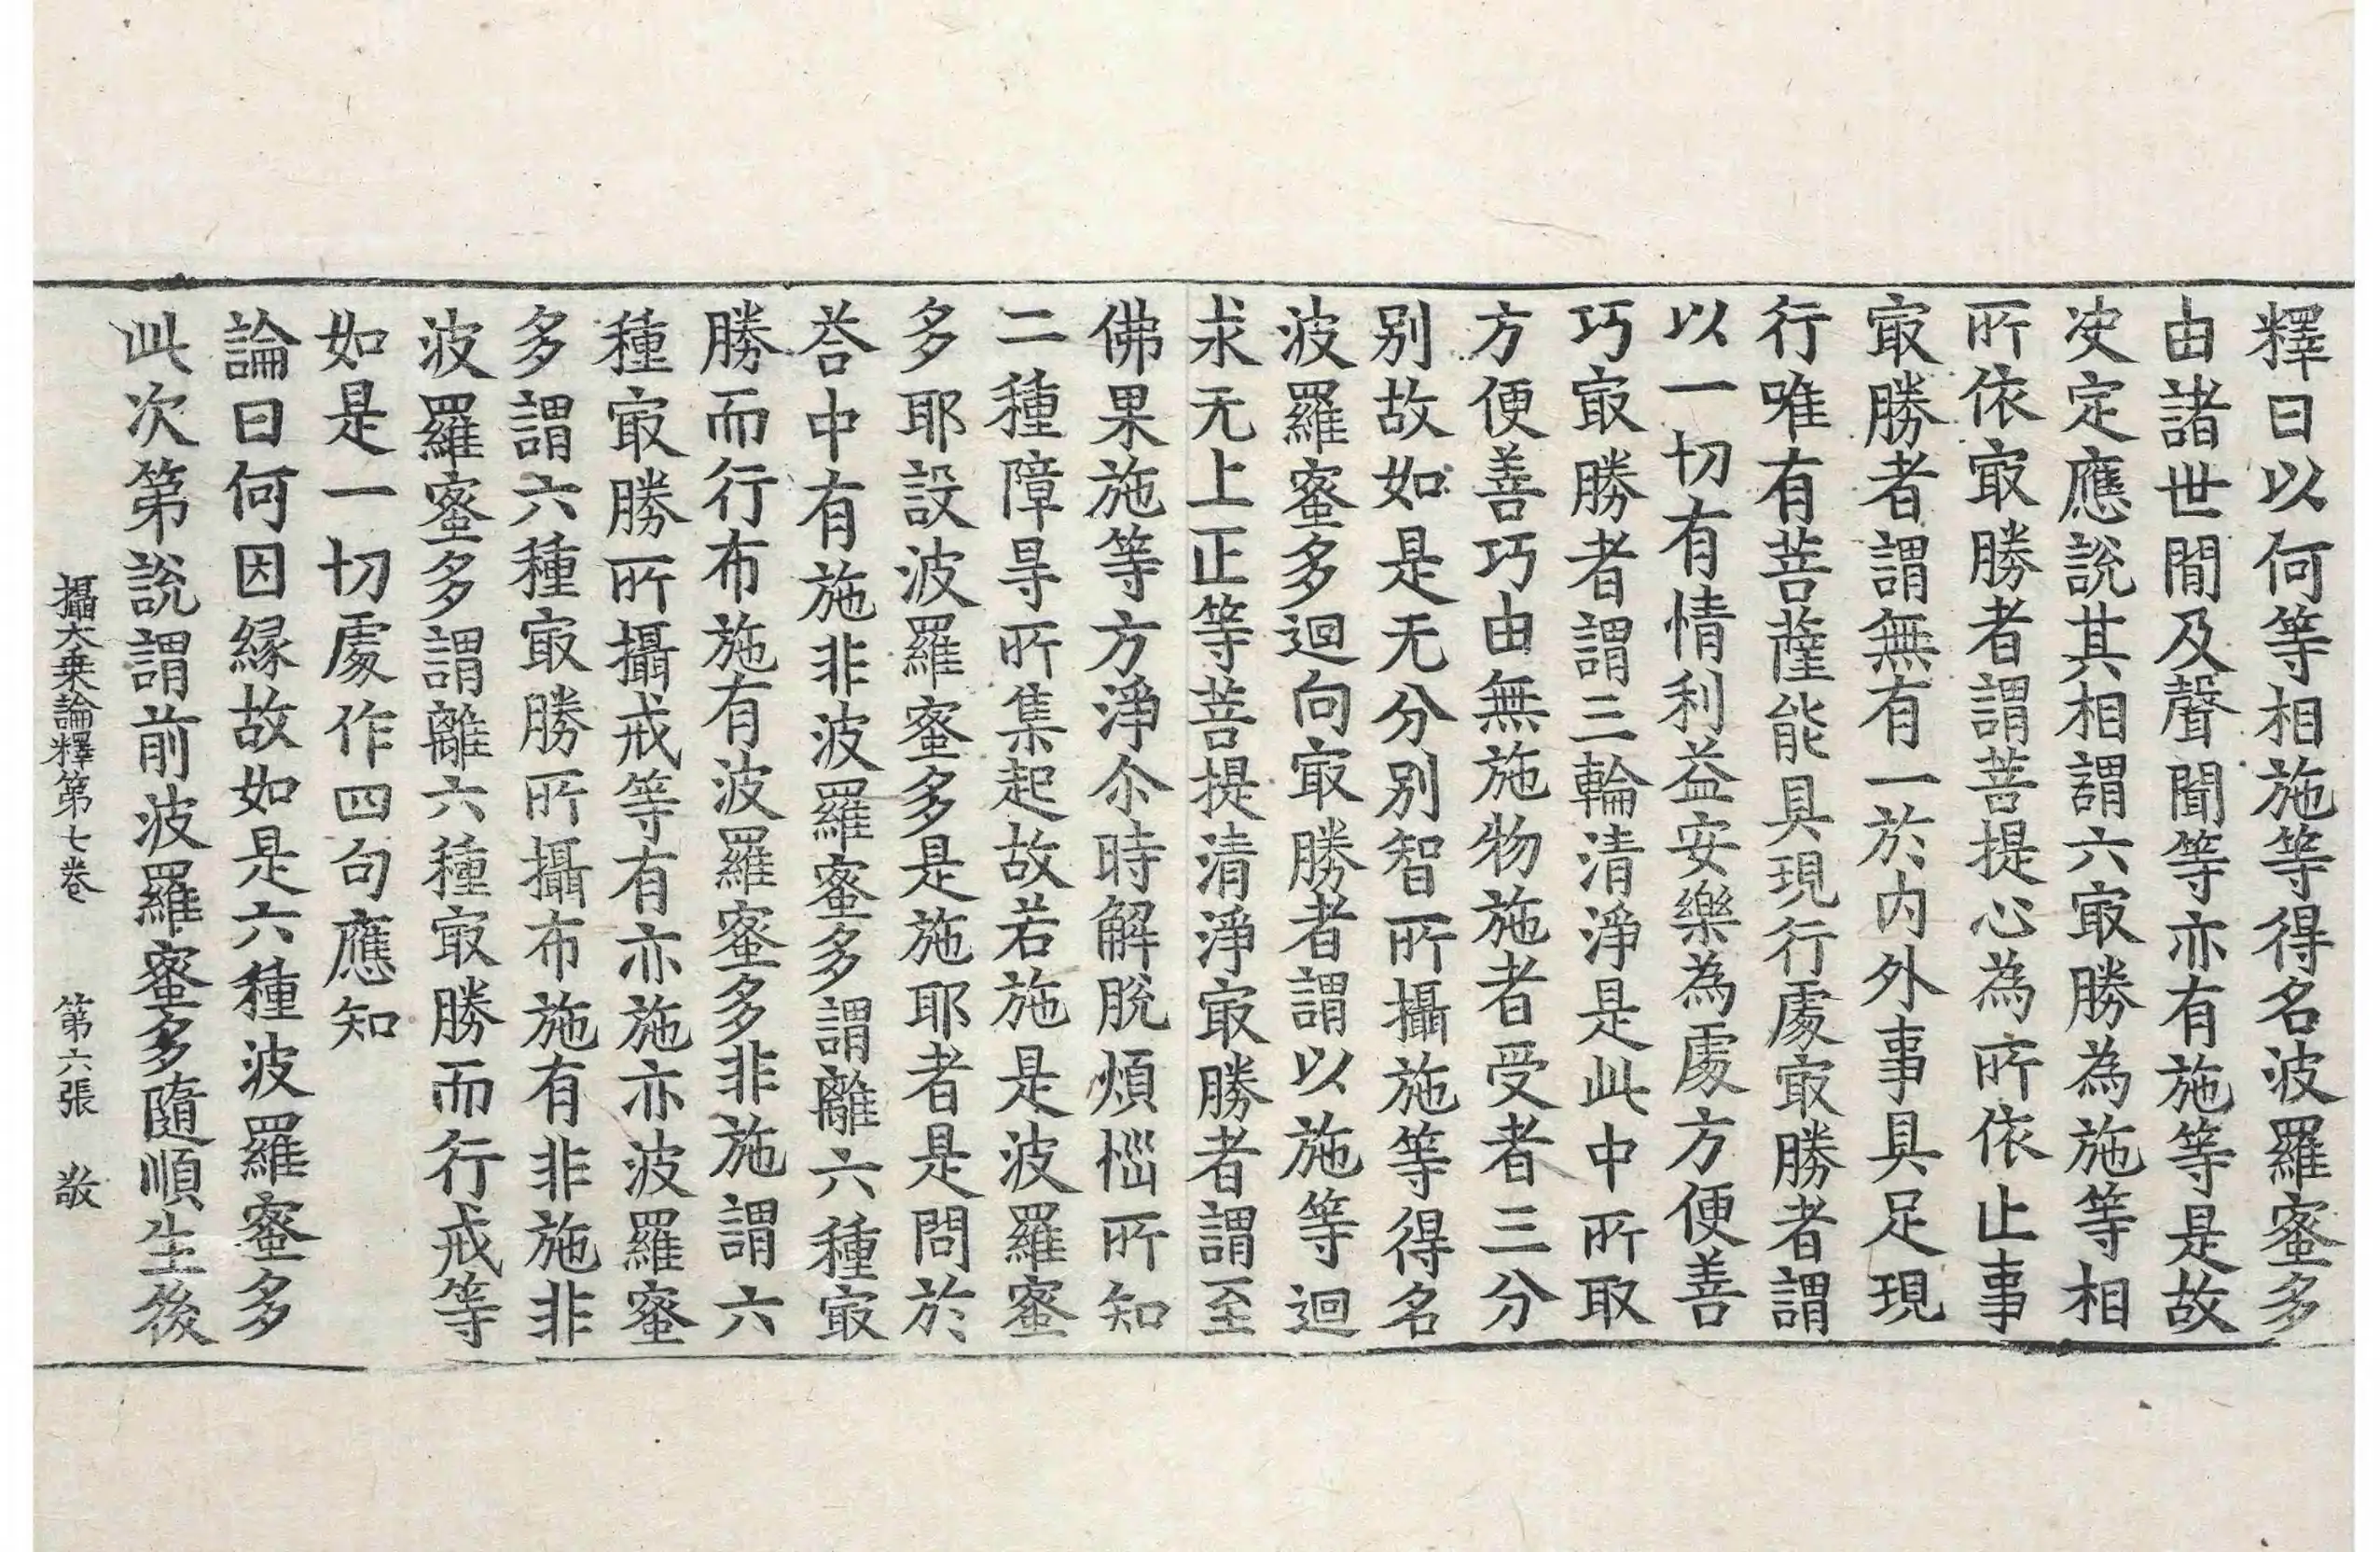 釋曰以何等相施等得名波羅蜜多
由諸世閒及聲聞等亦有施等是故
决定應說其相謂六㝡勝為施等相
所依㝡勝者謂菩提心為所依止事
㝡勝者謂無有一於内外事具足現
行唯有菩薩能具現行處㝡勝者謂
以一切有情利益安樂為處方便善
巧㝡勝者謂三輪清淨是此中所取
方便善巧由無施物施者受者三分
别故如是无分别智所攝施等得名
波羅蜜多迴向㝡勝者謂以施等迴
求无上正等菩提清淨㝡勝者謂至
佛果施等方淨尒時解脫煩惱所知
二種障㝵所集起故若施是波羅蜜
多耶設波羅蜜多是施耶者是問於
荅中有施非波羅蜜多謂離六種㝡
勝而行布施有波羅蜜多非施謂六
種㝡勝所攝戒等有亦施亦波羅蜜
多謂六種㝡勝所攝布施有非施非
波羅蜜多謂離六種㝡勝而行戒等
如是一切處作四句應知
論曰何因緣故如是六種波羅蜜多
此次第說謂前波羅蜜多隨順生後
攝大乗論釋第七卷 第六張 敬